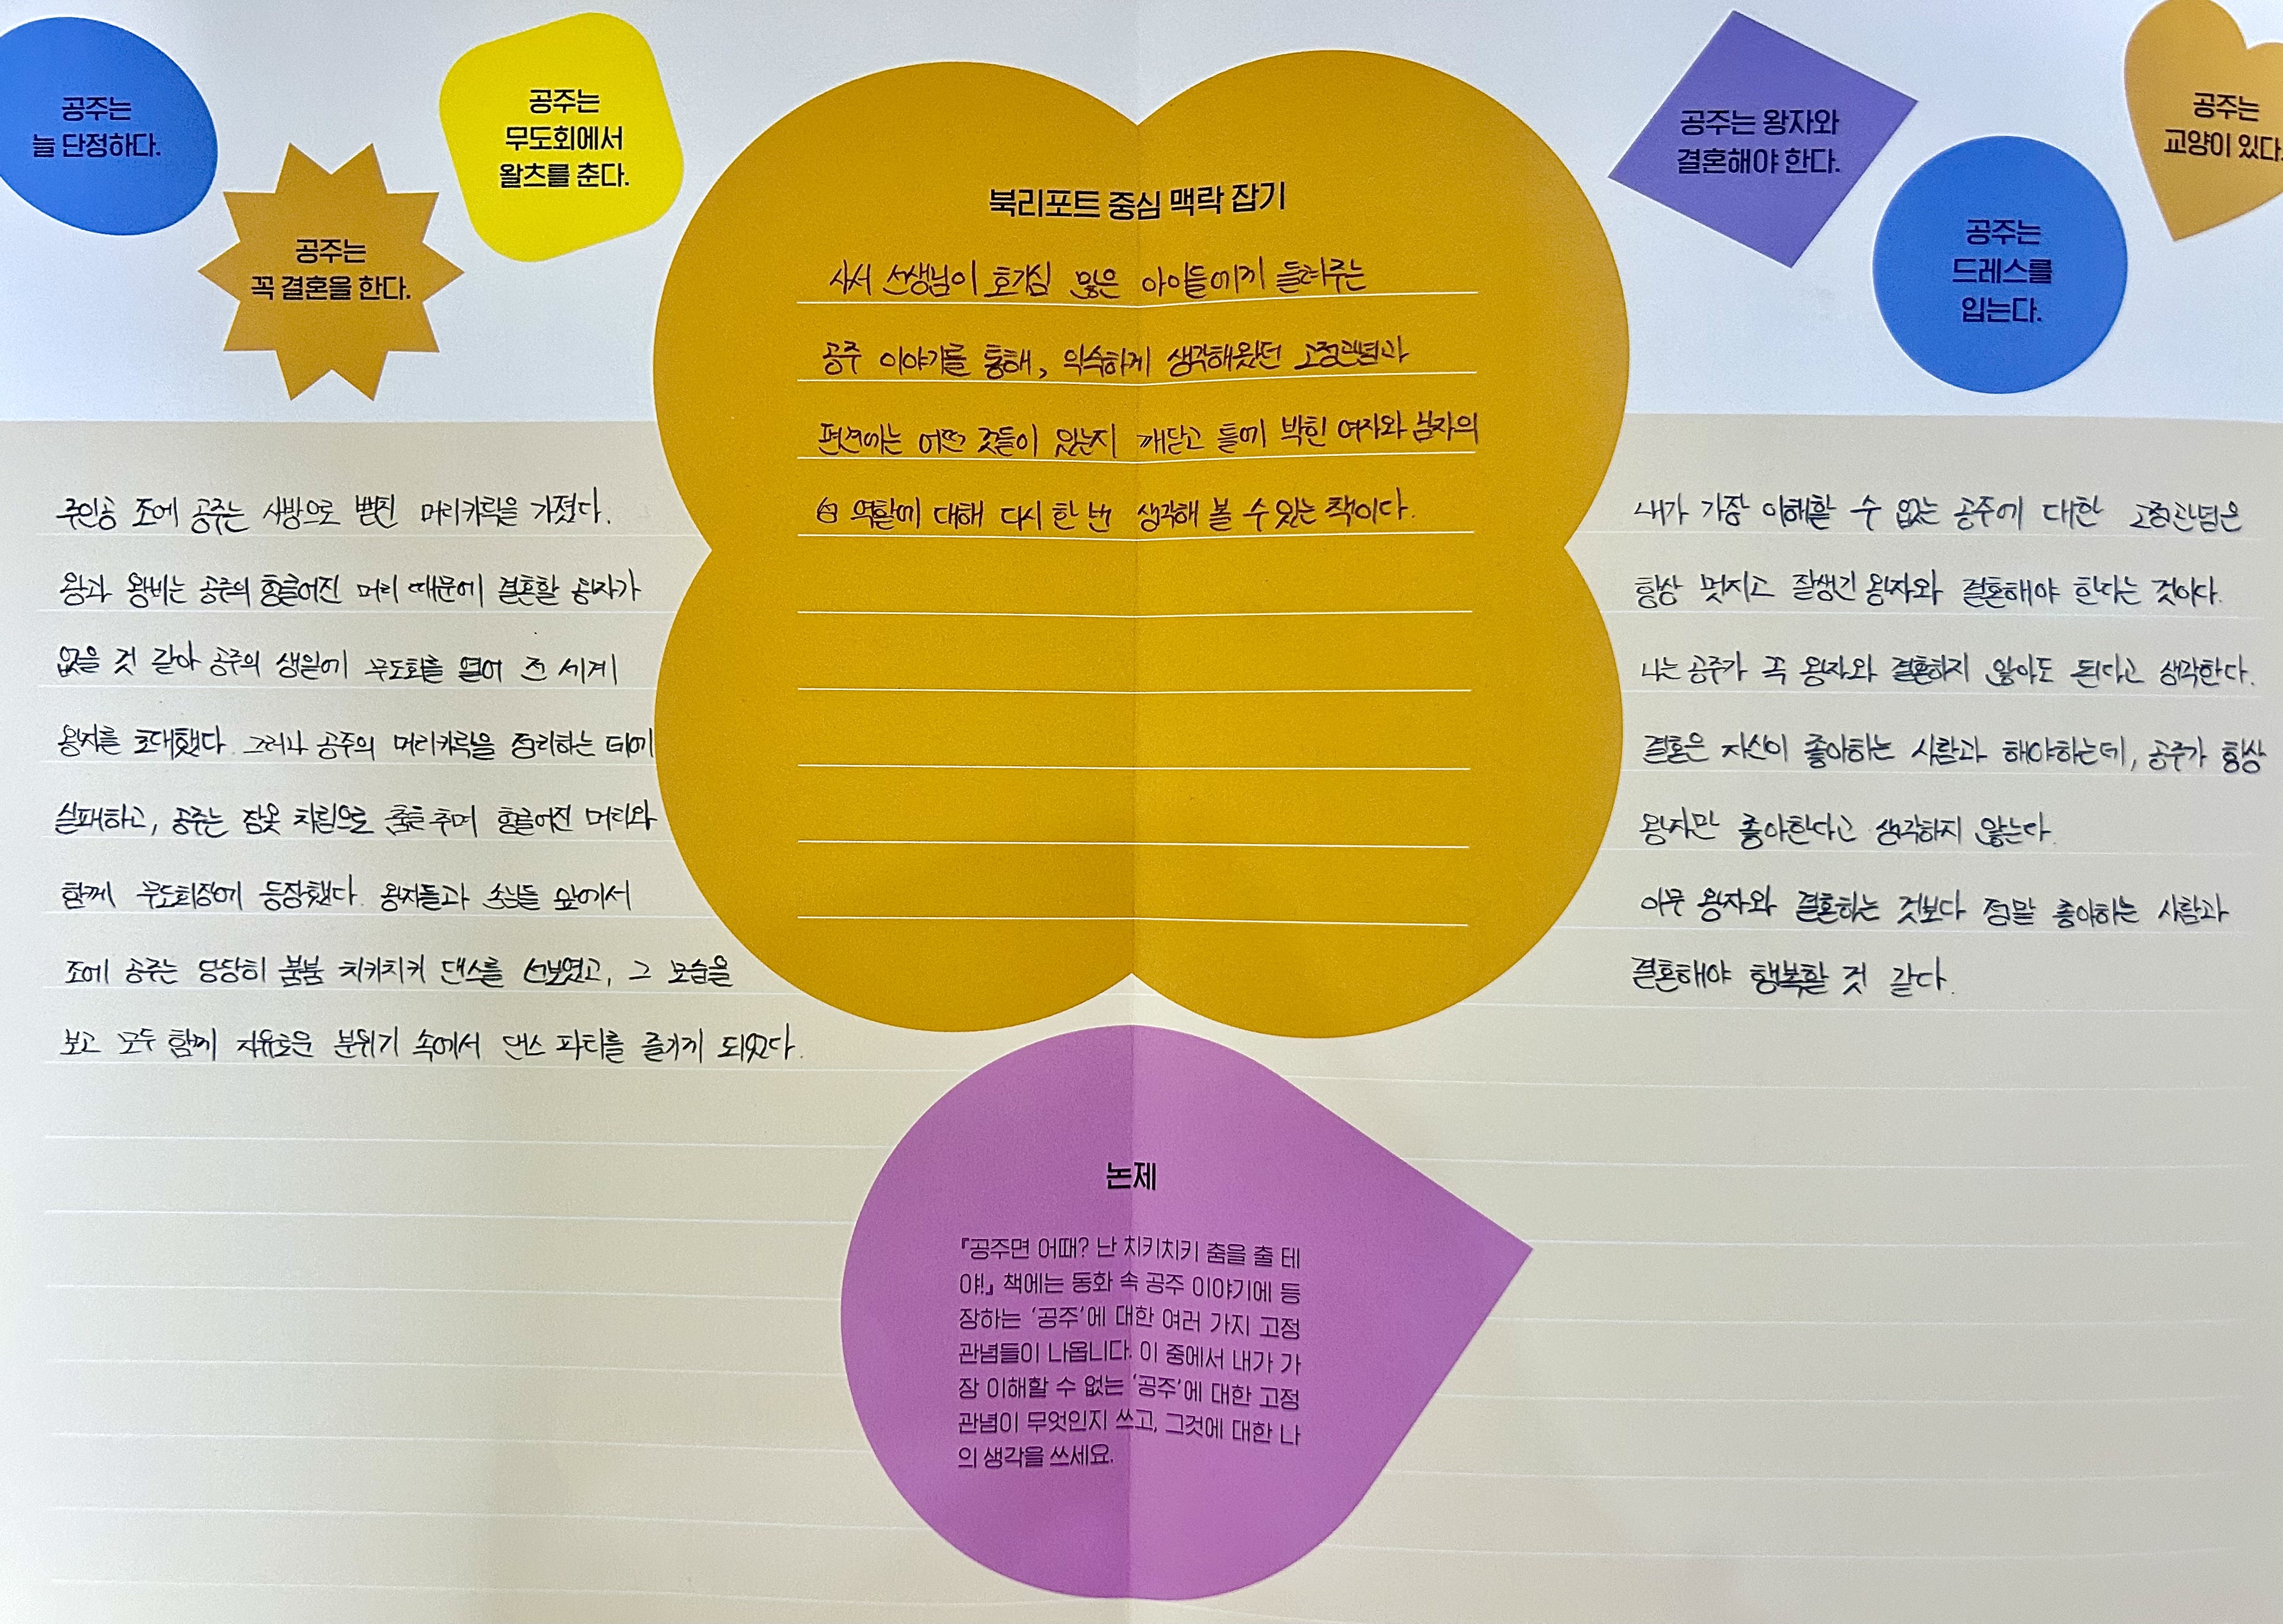 공주는
늘 단정하다.
공주는
꼭 결혼을 한다.
공주는
무도회에서
왈츠를 춘다.
북리포트 중심 맥락 잡기
사서 선생님이 호기심 많은 아이들에게 들려주는
공주 이야기를 통해, 익숙하게 생각해왔던 고정관념과
편견에는 어떤 것들이 있는지 깨닫고 틀에 박힌 여자와 남자의
역할에 대해 다시 한 번 생각해 볼 수 있는 책이다.
공주는 왕자와
결혼해야 한다.
공주는
드레스를
입는다.
공주는
교양이 있다.
주인공 조에 공주는 사방으로 뻗친 머리카락을 가졌다.
왕과 왕비는 공주의 헝클어진 머리 때문에 결혼할 왕자가
없을 것 같아 공주의 생일에 무도회를 열어 전 세계
왕자를 초대했다. 그러나 공주의 머리카락을 정리하는 데에
실패하고, 공주는 잠옷 차림으로 춤을 추며 헝클어진 머리와
함께 무도회장에 등장했다. 왕자들과 손님들 앞에서
조에 공주는 당당히 붐붐 치키치키 댄스를 선보였고, 그 모습을
보고 모두 함께 자유로운 분위기 속에서 댄스 파티를 즐기게 되었다.
내가 가장 이해할 수 없는 공주에 대한 고정관념은
항상 멋지고 잘생긴 왕자와 결혼해야 한다는 것이다.
나는 공주가 꼭 왕자와 결혼하지 않아도 된다고 생각한다.
결혼은 자신이 좋아하는 사람과 해야하는데, 공주가 항상
왕자만 좋아한다고 생각하지 않는다.
아무 왕자와 결혼하는 것보다 정말 좋아하는 사람과
결혼해야 행복할 것 같다.
논제
『공주면 어때? 난 치키치키 춤을 출 테
야!』 책에는 동화 속 공주 이야기에 등
장하는 '공주'에 대한 여러 가지 고정
관념들이 나옵니다. 이 중에서 내가 가
장 이해할 수 없는 '공주'에 대한 고정
관념이 무엇인지 쓰고, 그것에 대한 나
의 생각을 쓰세요.